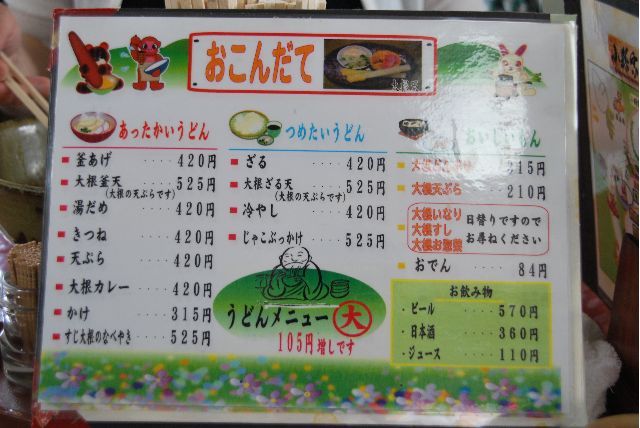 おこんだて
あったかいうどん
釜あげ ････ 420円
大根釜天 ････ 525円
(大根の天ぷらです)
湯だめ ････ 420円
きつね ････ 420円
天ぷら ････ 420円
大根カレー ････ 420円
かけ ････ 315円
すじ大根のなべやき ････ 525円
つめたいうどん
ざる ････ 420円
大根ざる天 ････ 525円
(大根の天ぷらです)
冷やし ････ 420円
じゃこぶっかけ ････ 525円
うどんメニュー 大
105円増しです
おいしいもん
315円
大根天ぷら ････ 210円
大根いなり
大根すし
大根お惣菜
日替りですので
お尋ねください
おでん ････ 84円
お飲み物
・ビール ････ 570円
・日本酒 ････ 360円
・ジュース ････ 110円